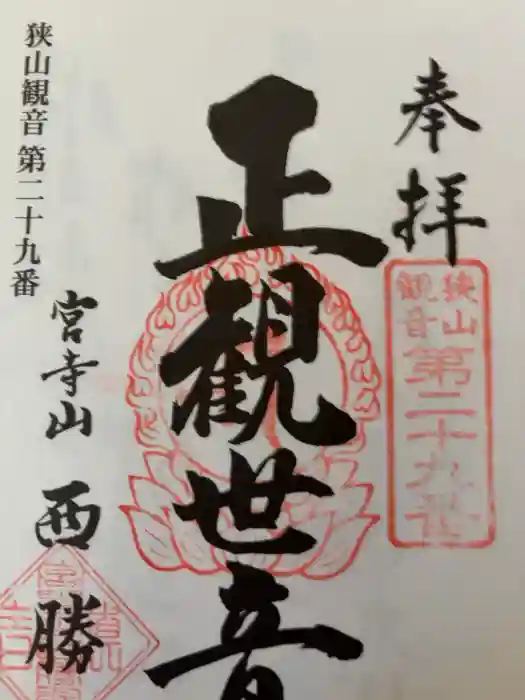 奉拝
狭山
観音
第二十九番
正観世音
宮寺山
西勝
狭山観音 第二十九番